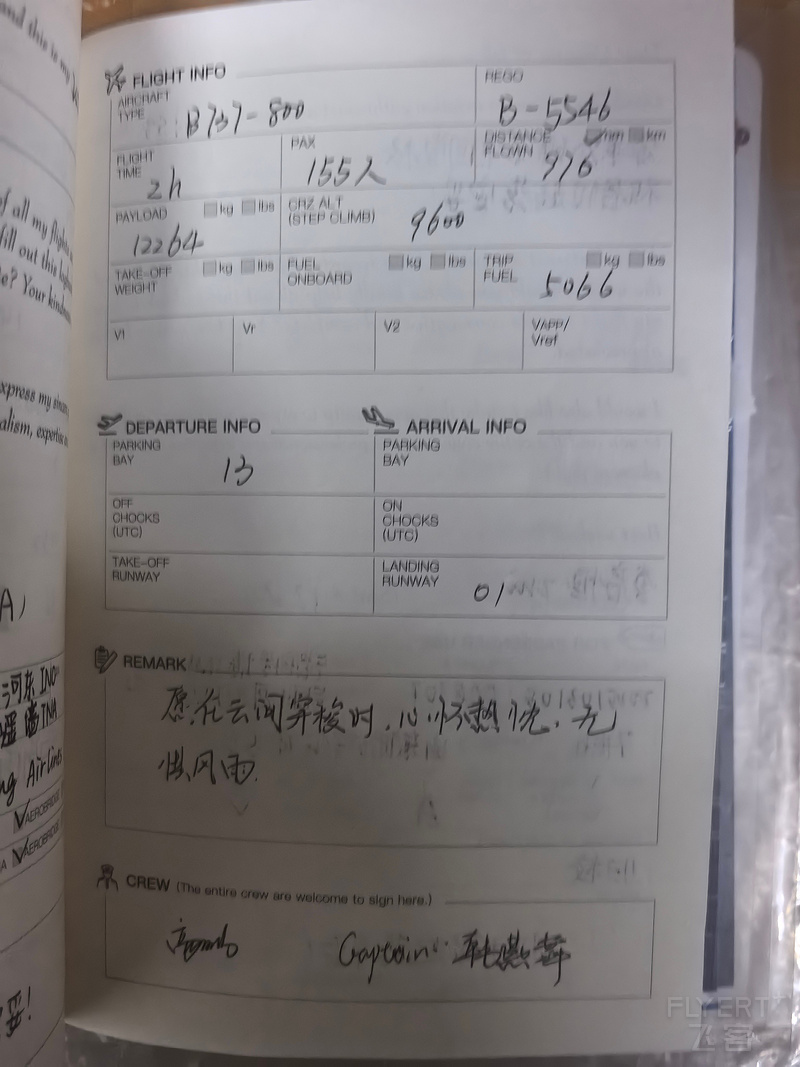 and this is my
FLIGHT INFO
AIRCRAFT TYPE B737-800
REGO B-5546
FLIGHT TIME 2h
PAX 155人
DISTANCE FLOWN nm km 976
PAYLOAD kg lbs 12264
CRZ ALT (STEP CLIMB) 9600
TAKE-OFF WEIGHT kg lbs
FUEL ONBOARD kg lbs
TRIP FUEL kg lbs 5066
V1
Vr
V2
VAPP/ Vref
of all my flights
fill out this
e? Your
xpress my
alism,
DEPARTURE INFO
PARKING BAY 13
OFF CHOCKS (UTC)
TAKE-OFF RUNWAY
ARRIVAL INFO
PARKING BAY
ON CHOCKS (UTC)
LANDING RUNWAY 01
REMARK
愿在云间穿梭时,心怀热忱,无
惧风雨.
河东 INC
墙 TNA
ng Airlines
AEROBRIDGE
AEROBRIDGE
CREW (The entire crew are welcome to sign here.)
Captain:
FLYERT
飞客